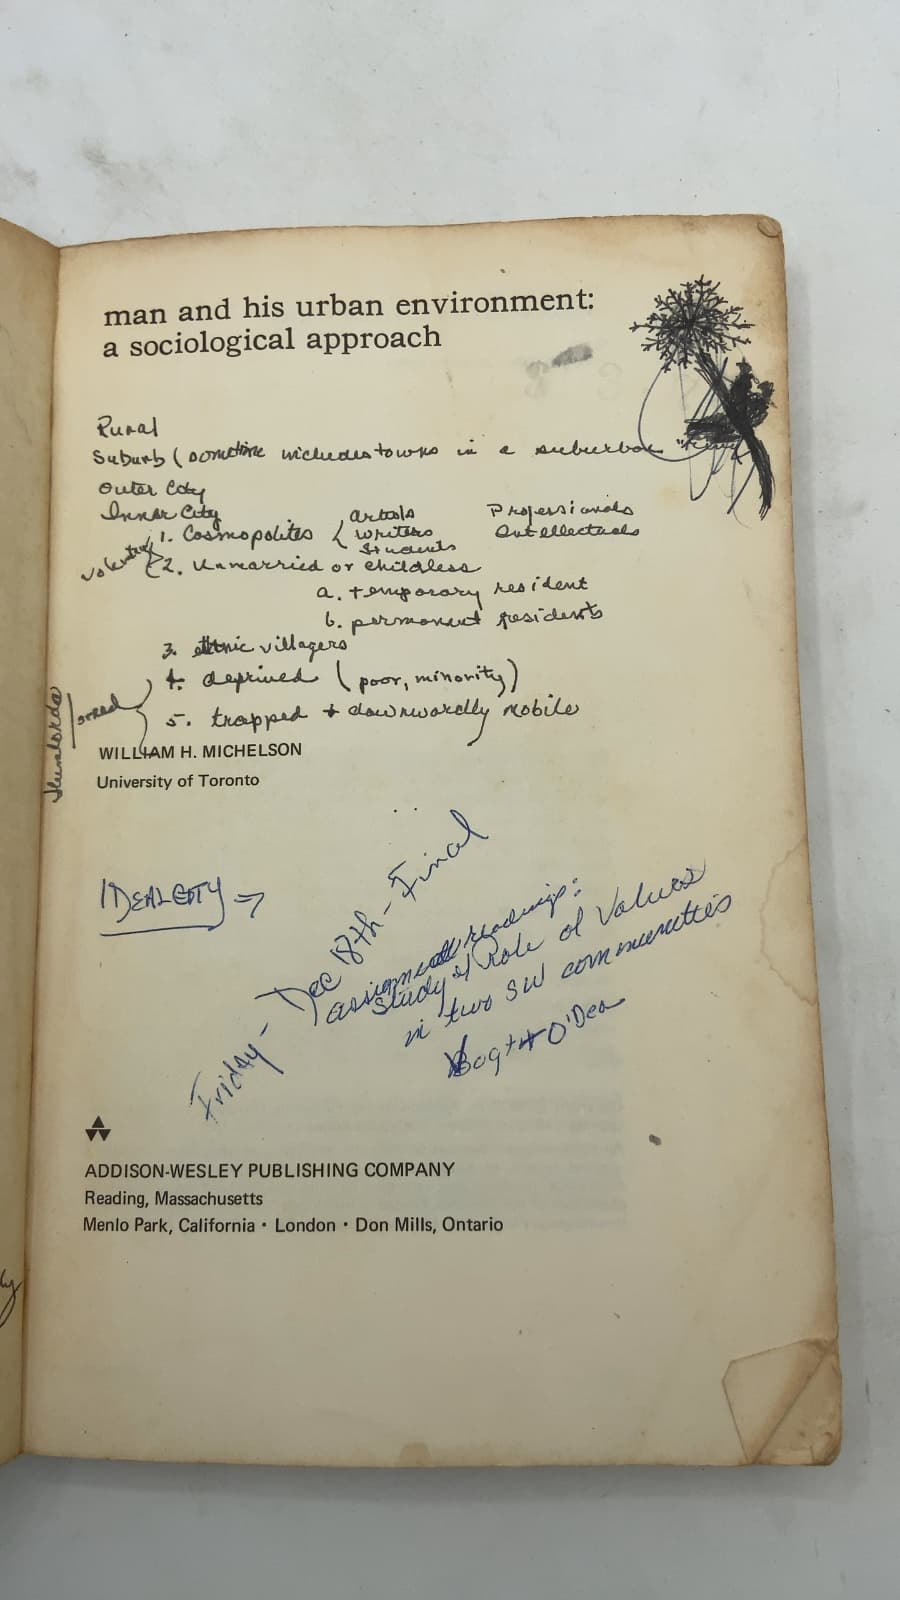 man and his urban environment:
a sociological approach
Rural
Suburb (sometime includes towns in a suburban "ring"
Outer City
Inner City
1. Cosmopolites { artists Professionals
writers Intellectuals
Students
voluntary
2. Unmarried or childless
a. temporary resident
b. permanent residents
3. ethnic villagers
4. deprived (poor, minority)
5. trapped + downwardly mobile
WILLIAM H. MICHELSON
University of Toronto
IDEAL CITY →
Friday - Dec 18th - Final
assignment readings:
Study of Role of Values
in two SW communities
Vogt + O'Dea
ADDISON-WESLEY PUBLISHING COMPANY
Reading, Massachusetts
Menlo Park, California · London · Don Mills, Ontario